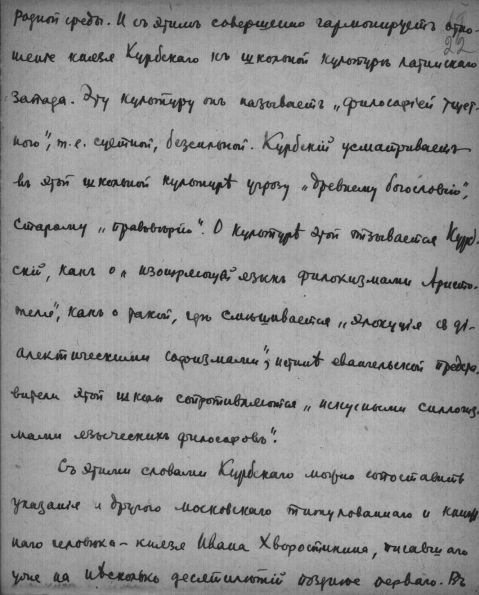 22
родной среды. И съ этимъ совершенно гармонируетъ отно-
шеніе князя Курбскаго къ школьной культурѣ латинскаго
запада. Эту культуру онъ называетъ „философіей тщет-
ною“, т.е. суетной, безсильной. Курбскій усматриваетъ
въ этой школьной культурѣ угрозу „древнему богословію“,
старому „правовѣрію“. О культурѣ этой отзывается Курб-
скій, какъ о „ языкъ филокизмами Аристо-
теля“, какъ о такой, гдѣ смѣшивается „элокуція съ ді-
алектическими софизмами“; истинѣ евангельской предста-
вители этой школы сопротивляются „искусными силлогиз-
мами языческихъ философовъ“.
Съ этими словами Курбскаго можно сопоставить
указанія и другого московскаго титулованнаго и
наго человѣка – князя Ивана Хворостинина, писавшаго
уже на нѣсколько десятилѣтій позднѣе перваго. Въ